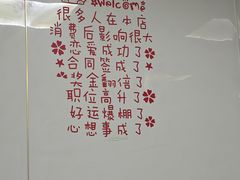 Welcome
很多人在本店
消费后影响很大
恋爱成功了
合同签成了
奖金翻倍了
职位高升了
好运爆棚了
心想事成了